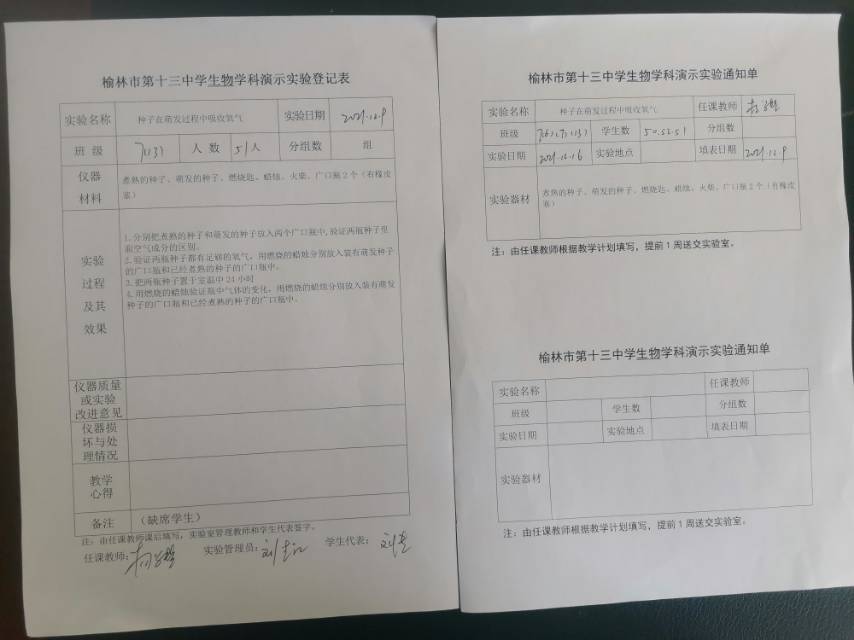 榆林市第十三中学生物学科演示实验登记表
实验名称 种子在萌发过程中吸收氧气 实验日期 2021.12.9
班 级 7(3) 人 数 51人 分组数 组
仪器
材料
煮熟的种子、萌发的种子、燃烧匙、蜡烛、火柴、广口瓶2个（有橡皮
塞）
实验
过程
及其
效果
1.分别把煮熟的种子和萌发的种子放入两个广口瓶中,验证两瓶种子里
面空气成分的区别。
2.验证两瓶种子都有足够的氧气，用燃烧的蜡烛分别放入装有萌发种子
的广口瓶和已经煮熟的种子的广口瓶中。
3.把两瓶种子置于室温中24小时
4.用燃烧的蜡烛验证瓶中气体的变化，用燃烧的蜡烛分别放入装有萌发
种子的广口瓶和已经煮熟的种子的广口瓶中。
仪器质量
或实验
改进意见
仪器损
坏与处
理情况
教学
心得
备注 （缺席学生）
注：由任课教师课后填写，实验室管理教师和学生代表签字。
任课教师： 实验管理员： 学生代表：
榆林市第十三中学生物学科演示实验通知单
实验名称 种子在萌发过程中吸收氧气 任课教师
班级 学生数 50.52.51 分组数
实验日期 2021.12.16 实验地点 填表日期 2021.12.9
实验器材
煮熟的种子、萌发的种子、燃烧匙、蜡烛、火柴、广口瓶2个（有橡皮
塞）
注：由任课教师根据教学计划填写，提前1周送交实验室。
榆林市第十三中学生物学科演示实验通知单
实验名称 任课教师
班级 学生数 分组数
实验日期 实验地点 填表日期
实验器材
注：由任课教师根据教学计划填写，提前1周送交实验室。